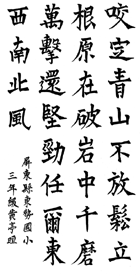 咬定青山不放鬆立
根原在破岩中千磨
萬擊還堅勁任爾東
西南北風
屏東縣東勢國小
三年級黃亭